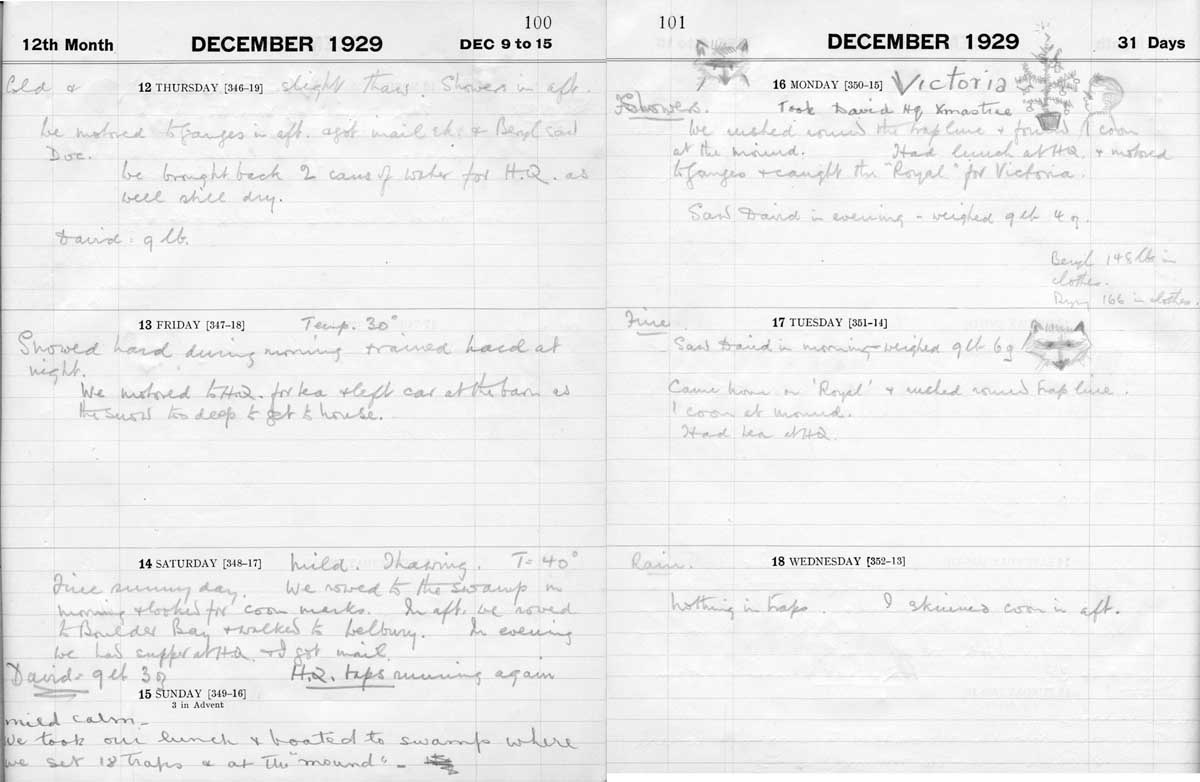 100
12th Month DECEMBER 1929 DEC 9 to 15
Cold & 12 THURSDAY [346-19] slight thaw. Showers in aft.
We motored to Ganges in aft. & got mail & Beryl saw
Doc.
We brought back 2 cans of water for H.Q. as
well still dry.
David: 9 lb.
13 FRIDAY [347-18] Temp. 30°
Snowed hard during morning & rained hard at
night.
We motored to H.Q. for tea & left car at the barn as
the snow too deep to get to house.
14 SATURDAY [348-17] Mild. Thawing. T= 40°
Fine sunny day. We rowed to the swamp in
morning & looked for coon marks. In aft. we rowed
to Boulder Bay & walked to Welbury. In evening
we had supper at HQ & I got mail.
David= 9 lb 3g H.Q. taps running again
15 SUNDAY [349-16]
3 in Advent
mild calm-
We took our lunch & boated to swamp where
we set 18 traps & at the "mound" -
101
DECEMBER 1929 31 Days
16 MONDAY [350-15] Victoria
Showers. Took David Hq Xmastree
We rushed round the trap line & found 1 coon
at the mound. Had lunch at HQ. & motored
to Ganges & caught the "Royal" for Victoria.
Saw David in evening - weighed 9 lb 4 g.
Beryl 148 lb in
clothes.
166 in clothes.
Fine 17 TUESDAY [351-14]
Saw David in morning - weighed 9 lb 6g!
Came home on 'Royal' & rushed round trap line.
1 coon at mound.
Had tea at HQ.
Rain. 18 WEDNESDAY [352-13]
Nothing in traps. I skinned coon in aft.